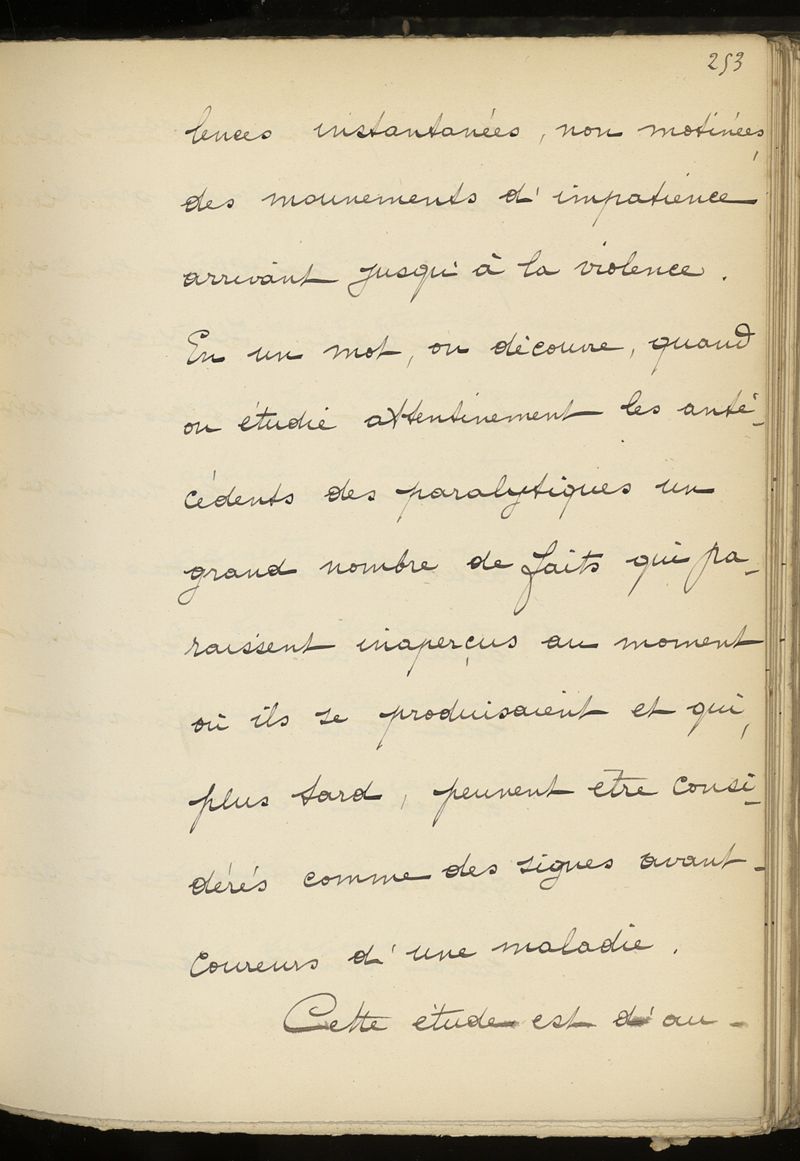 253
lences instantanées, non motivées,
des mouvements d'impatience
arrivant jusqu'à la violence.
En un mot, on découvre, quand
on étudie attentivement les anté-
cédents des paralytiques un
grand nombre de faits qui pa-
raissent inaperçus au moment
où ils se produisaient et qui,
plus tard, peuvent etre consi-
dérés comme des signes avant-
coureurs d'une maladie.
Cette étude est d'au-